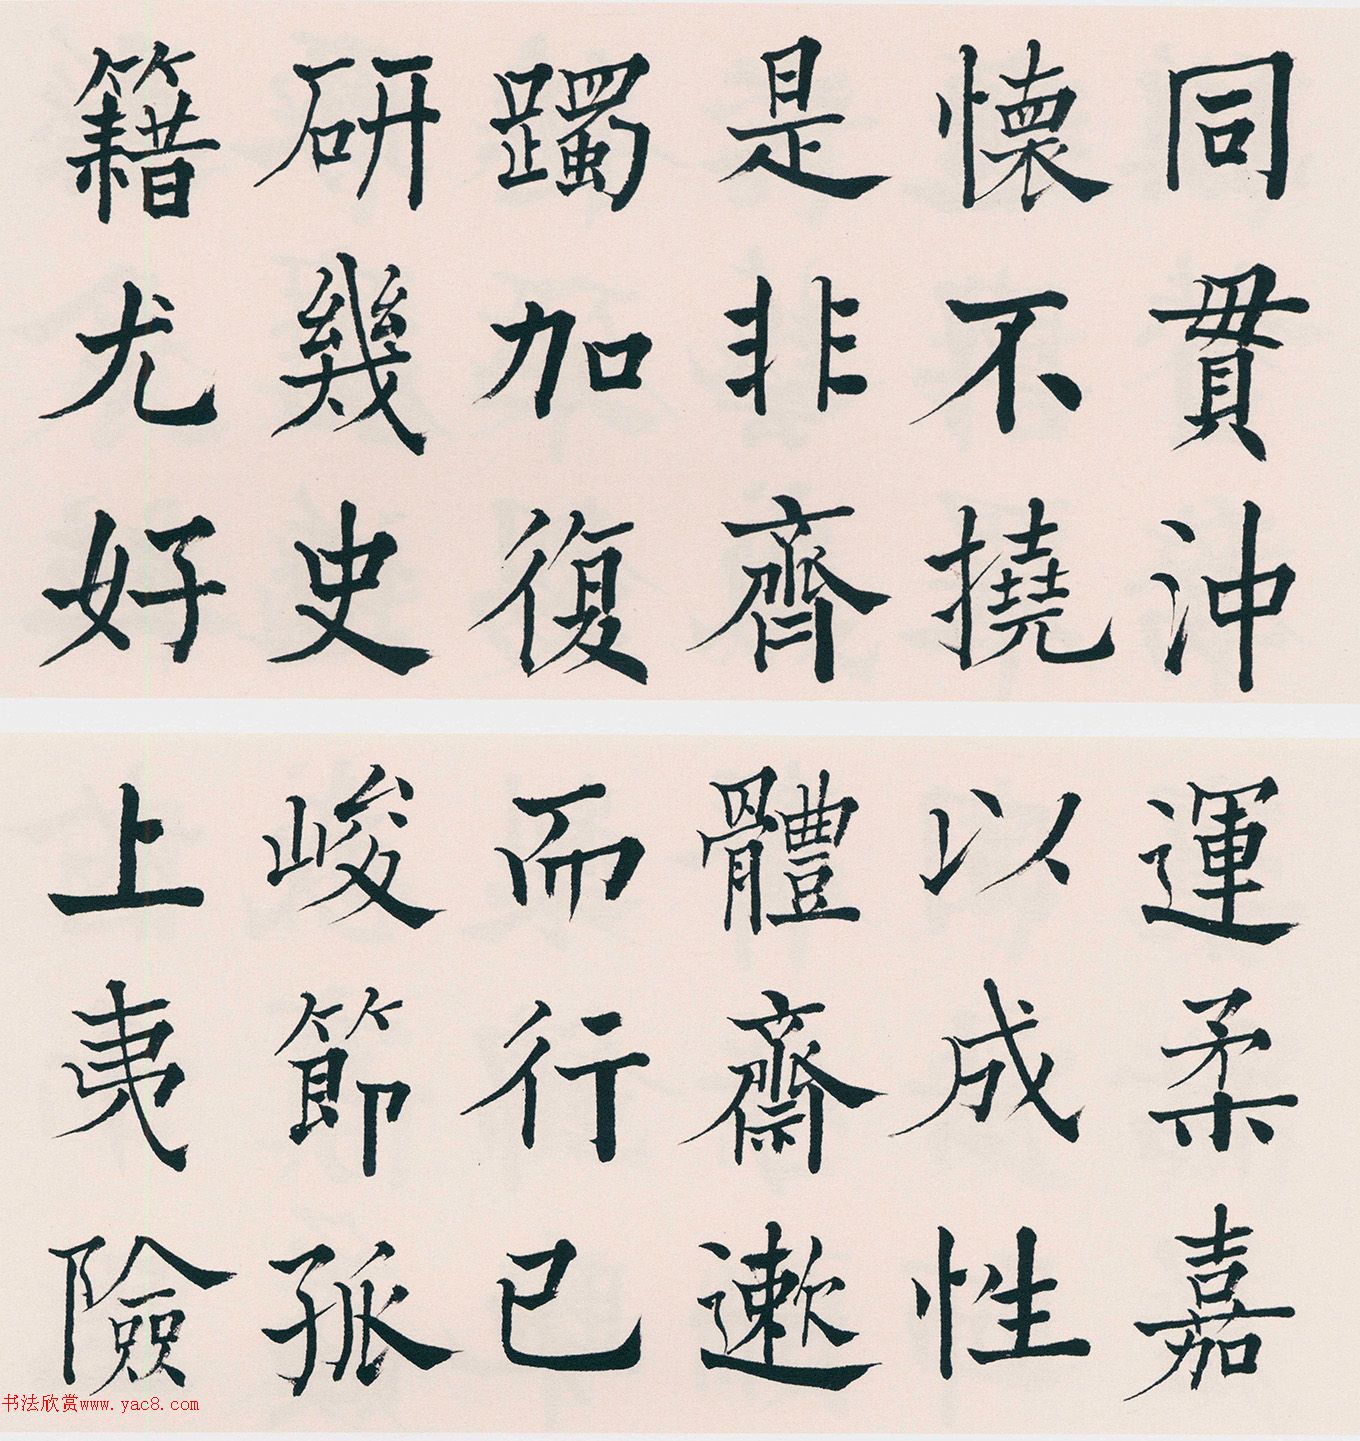 同貫沖
懷不撓
是非齊
躅加復
研幾史
籍尤好
運柔嘉
以成性
體齋遬
而行已
峻節孤
上夷險
书法欣赏www.yac8.com